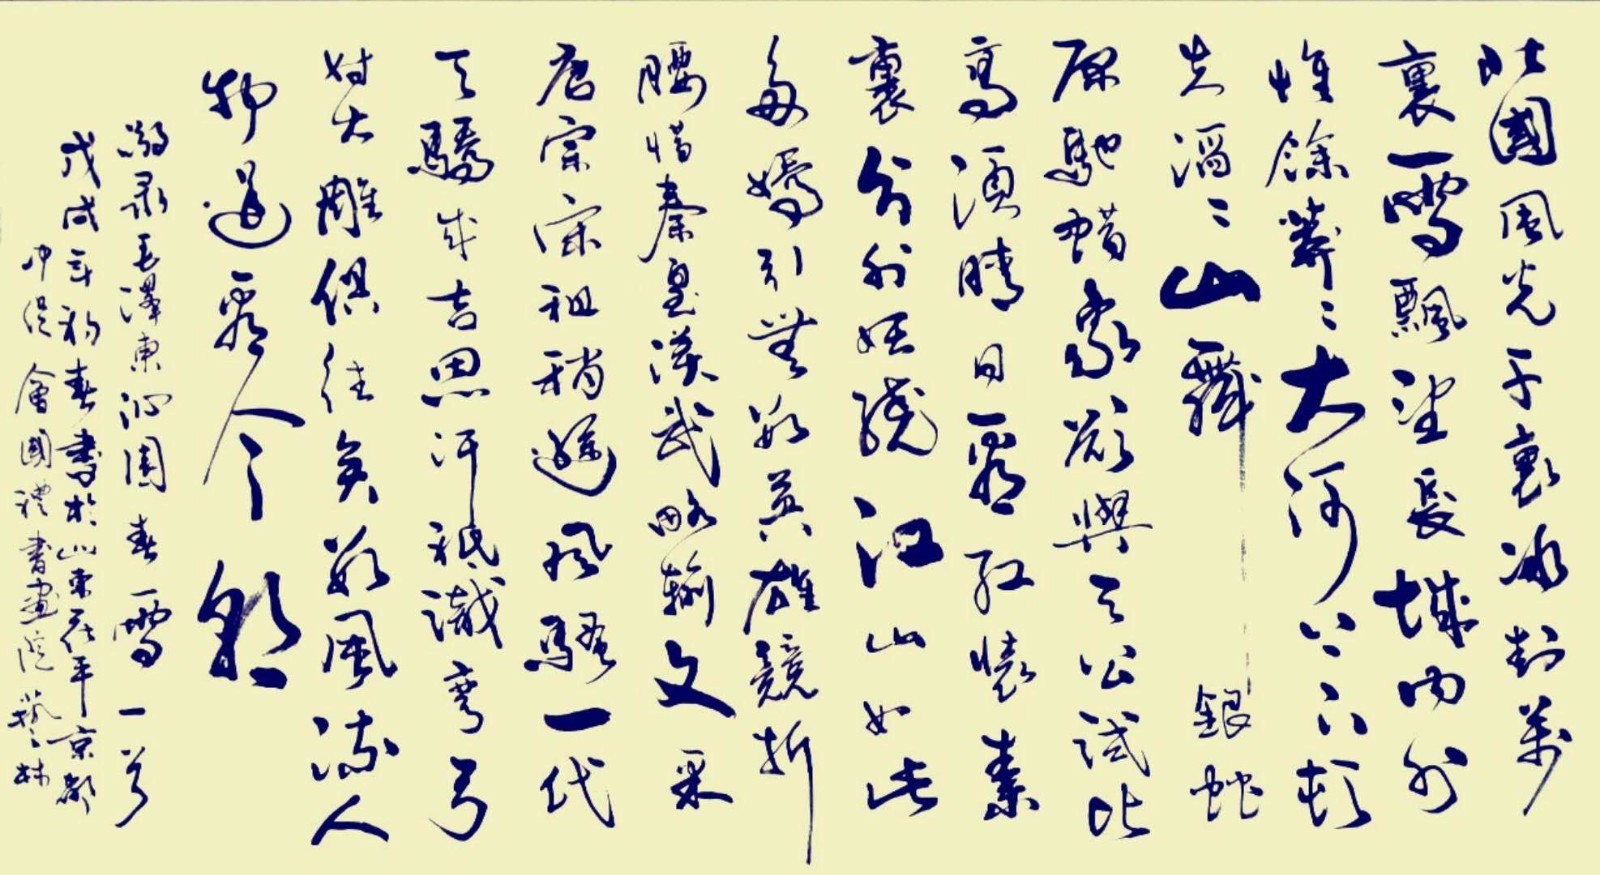 北國風光千裏冰封萬
裏雪飄望長城內外
惟餘莽〻大河上下頓
失滔〻山舞銀蛇
原馳蜡象欲與天公試比
高須晴日看紅裝素
裹分外妖嬈江山如此
多嬌引無數英雄競折
腰惜秦皇漢武略輸文采
唐宗宋祖稍遜風騷一代
天驕成吉思汗祇識彎弓
射大雕俱往矣數風流人
物還看今朝
敬录毛澤東沁園春雪一首
戊戌年初春書於山東茌平京都
中促會國禮書畫院藝林